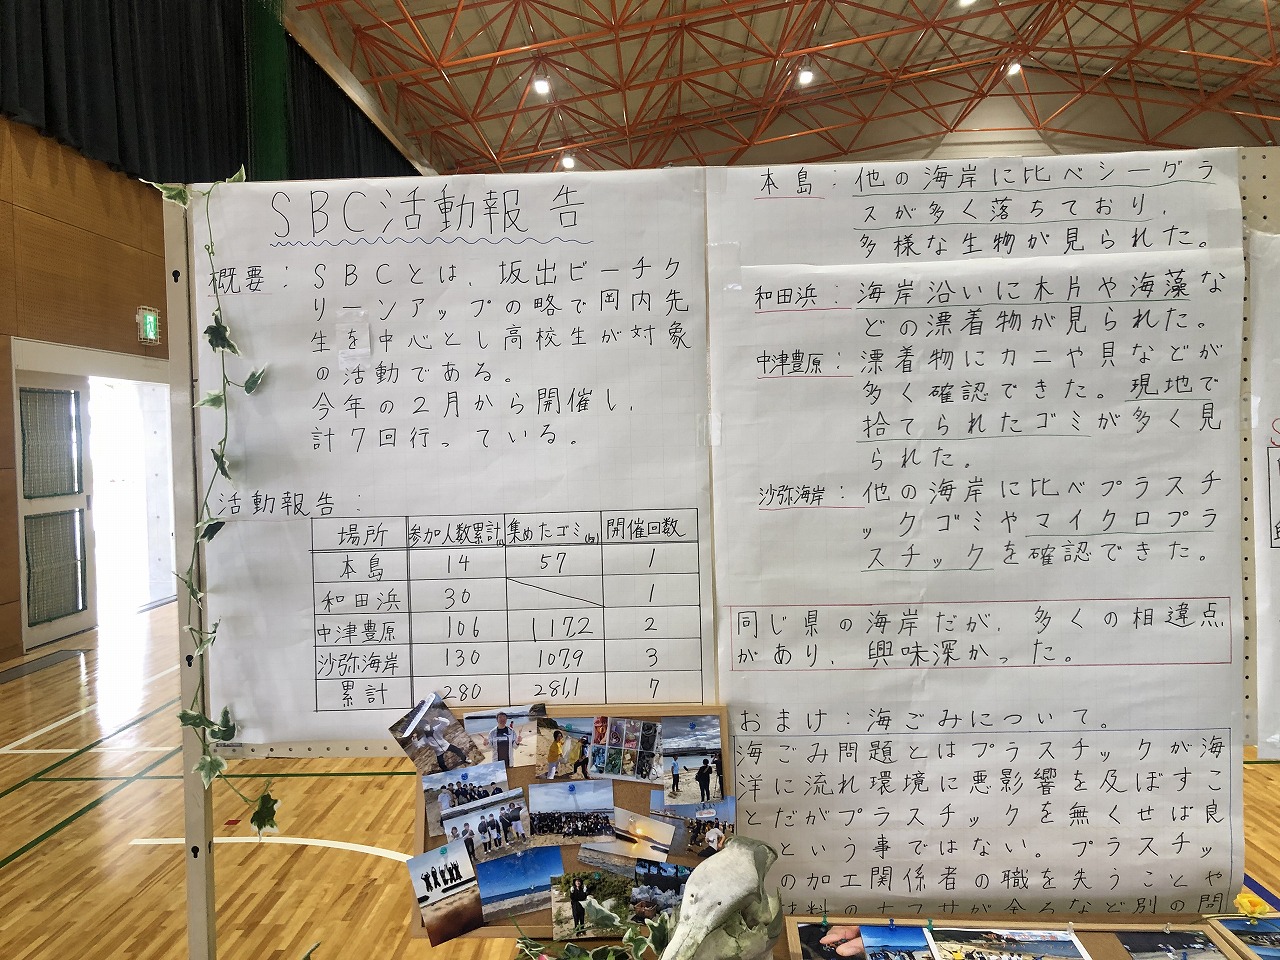 SBC活動報告
概要:SBCとは、坂出ビーチク
リーンアップの略で岡内先
生を中心とし高校生が対象
の活動である。
今年の2月から開催し、
計7回行っている。
活動報告:
場所 参加人数累計 集めたゴミ(kg) 開催回数
本島 14 57 1
和田浜 30 1
中津豊原 106 117,2 2
沙弥海岸 130 107,9 3
累計 280 281,1 7
本島:他の海岸に比べシーグラ
スが多く落ちており、
多様な生物が見られた。
和田浜:海岸沿いに木片や海藻な
どの漂着物が見られた。
中津豊原:漂着物にカニや貝などが
多く確認できた。現地で
捨てられたゴミが多く見
られた。
沙弥海岸:他の海岸に比べプラスチ
ックゴミやマイクロプラ
スチックを確認できた。
同じ県の海岸だが、多くの相違点
があり、興味深かった。
おまけ:海ごみについて。
海ごみ問題とはプラスチックが海
洋に流れ環境に悪影響を及ぼすこ
とだがプラスチックを無くせば良
という事ではない。プラスチッ
の加工関係者の職を失うことや
料のナフサが余るなど別の問